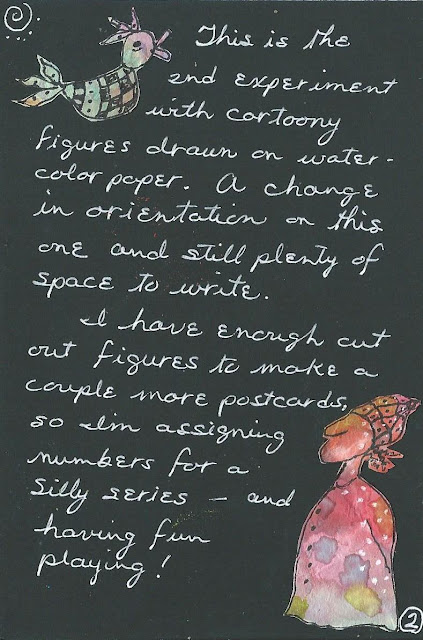 This is the
2nd experiment
with cartoony
figures drawn on water-
color paper. A change
in orientation on this
one and still plenty of
space to write.
I have enough cut
out figures to make a
couple more postcards,
so I'm assigning
numbers for a
silly series – and
having fun
playing!
2